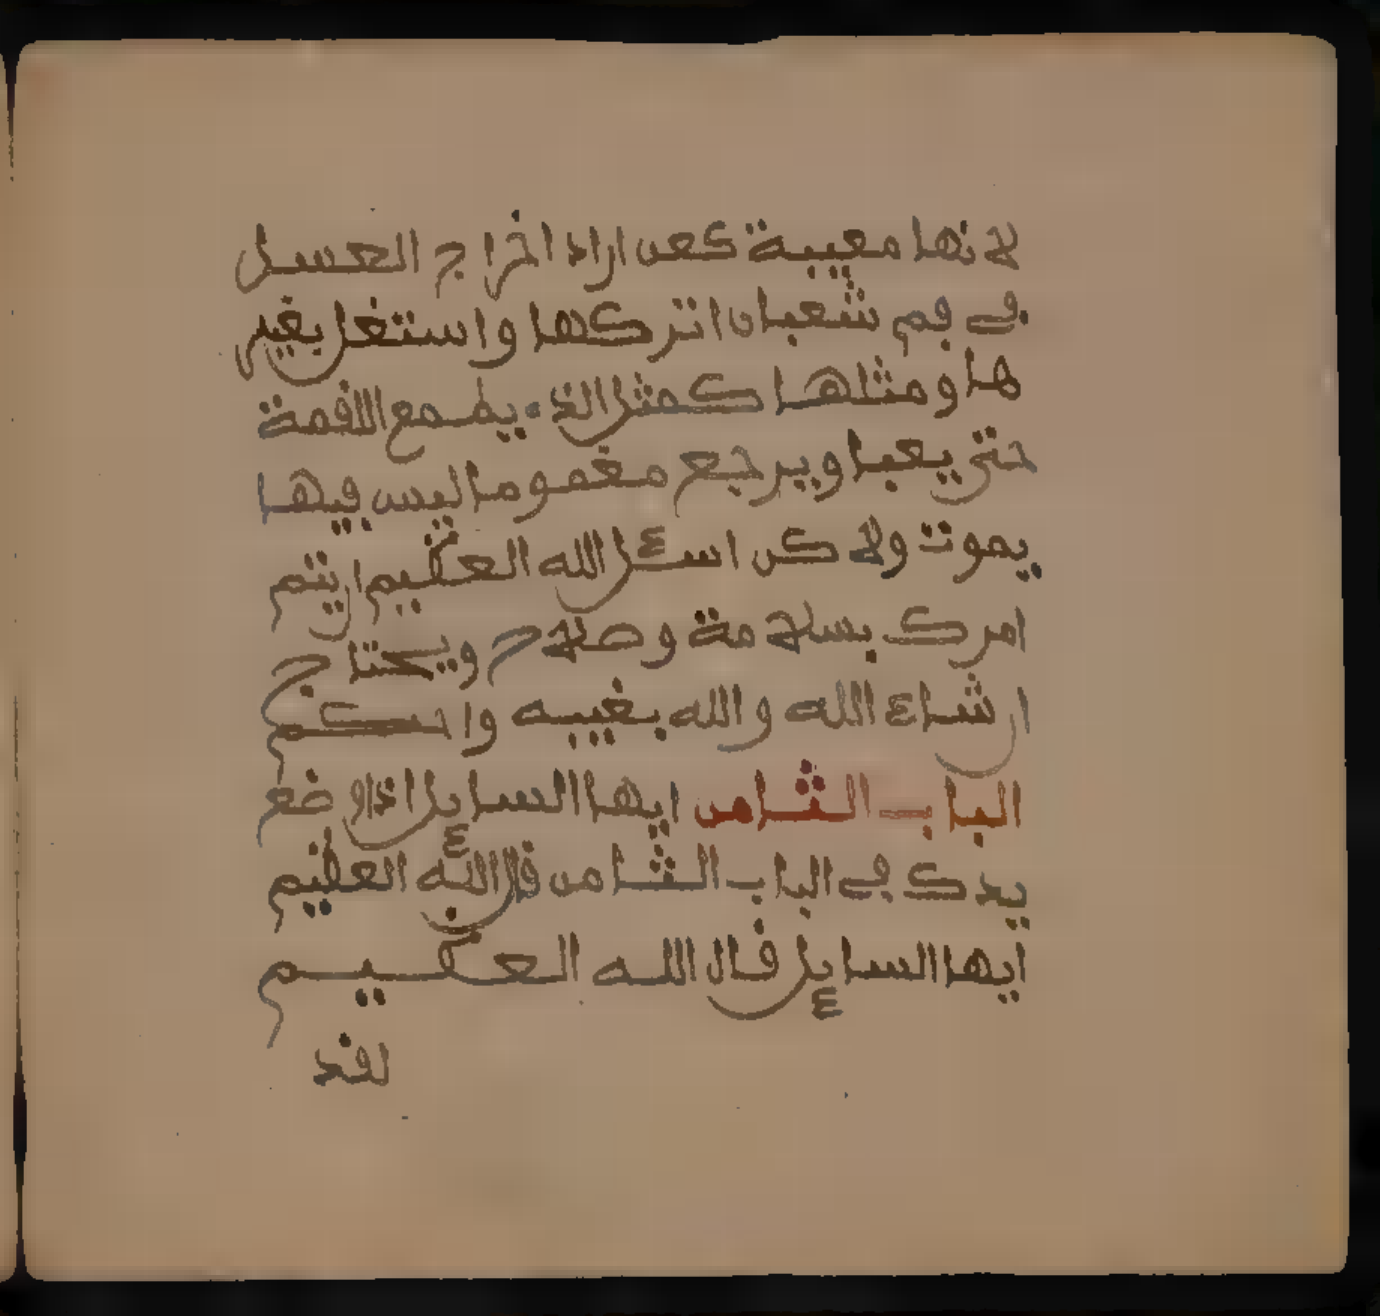 لا نها معيبة كمن اراد اخراج العسل
في فم شعبان اتركها واستغل بغير
ها ومثلها كمثل الذ يطمع اللقمة
حتى يعبا ويرجع مغموما ليس فيها
يموت ولا كن اسئل الله العظيم ان يتم
امرك بسلامة وصلاح ويحتاج
ان شاء الله والله بغيبه واحكم
الباب الثامن ايها السايل اذا وضع
يدك في الباب الثامن قال الله العظيم
ايها السايل قال الله العظيم
لقد